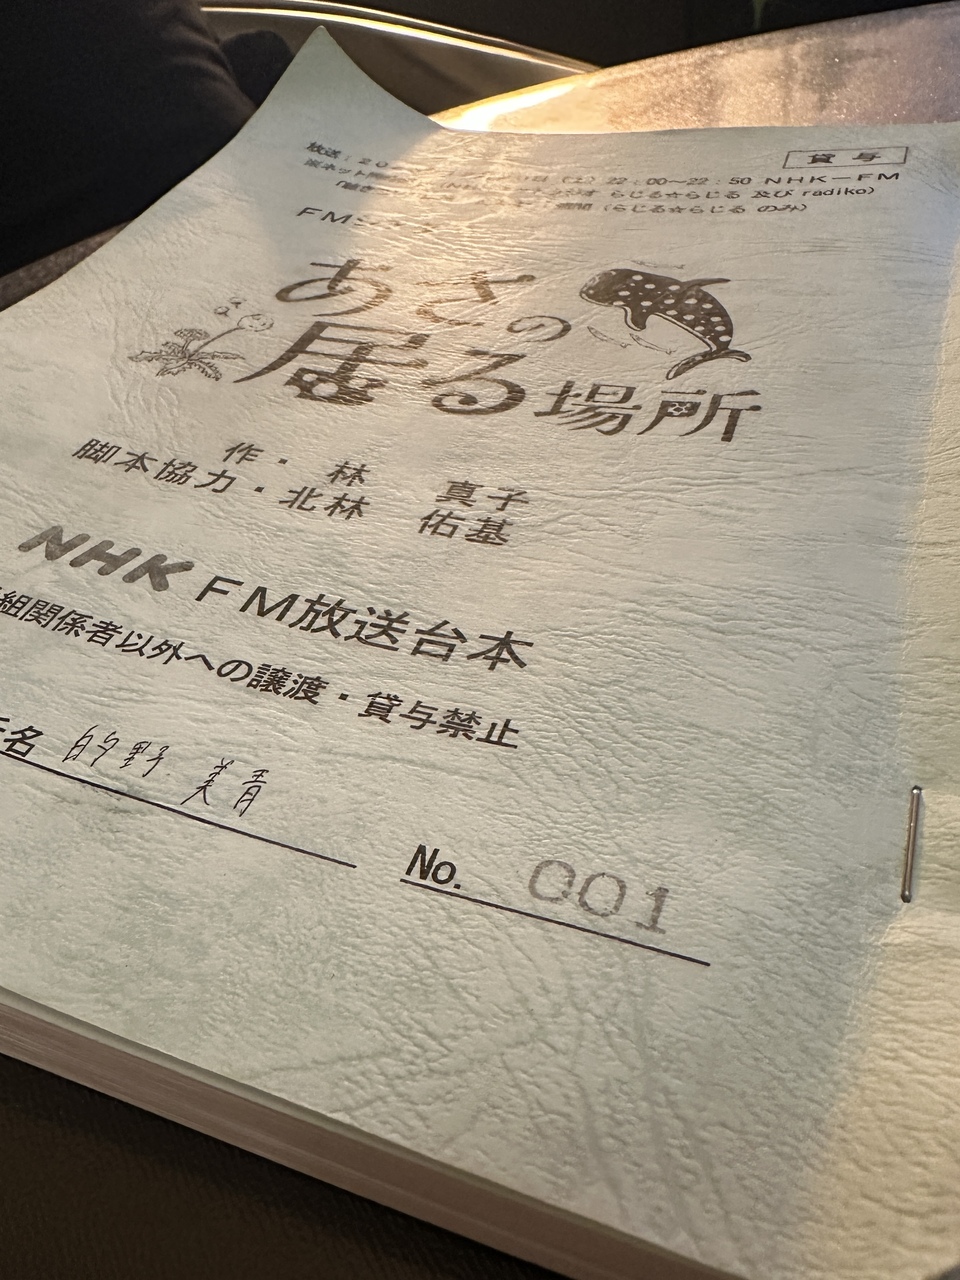 貸与
放送：20
(土) 22：00〜22：50 NHK－FM
らじる☆らじる 及び radiko)
(らじる☆らじる のみ)
FMシ
あさの
居る場所
作・林 真子
脚本協力・北林 佑基
NHK FM放送台本
組関係者以外への譲渡・貸与禁止
名 的野 美青
No. 001